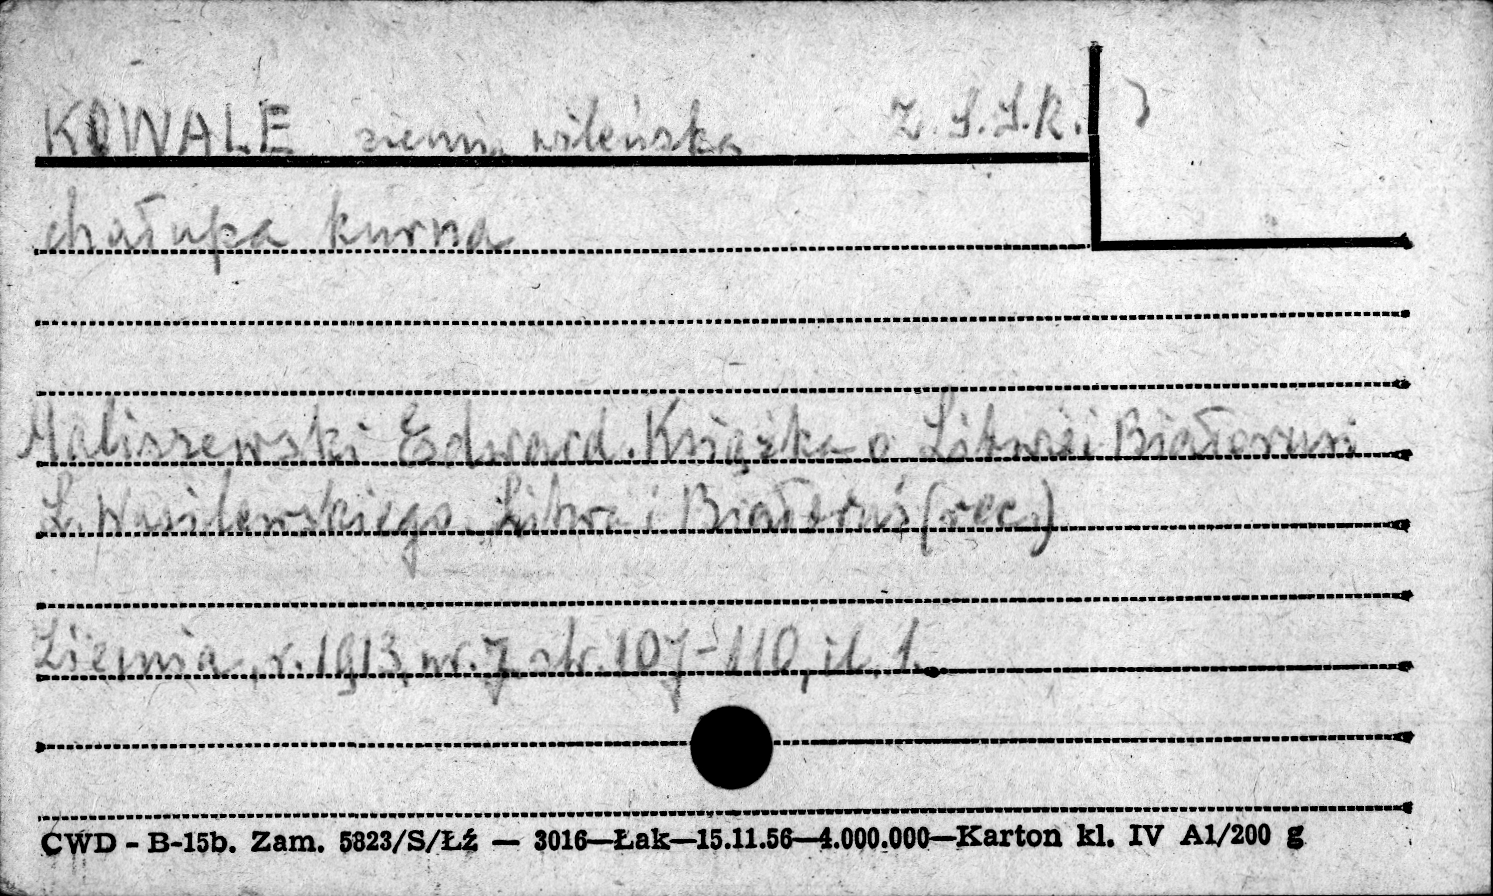 KOWALE ziemia wileńska Z.S.S.R. )
chałupa kurna
Maliszewski Edward. Książka o Litwie i Białorusi
L. Wasilewskiego. Litwa i Białoruś (rec.)
Ziemia, r. 1913, nr. 7, str. 107-110, il. 1.
CWD - B-15b. Zam. 5823/S/Łź — 3016—Łak—15.11.56—4.000.000—Karton kl. IV A1/200 g